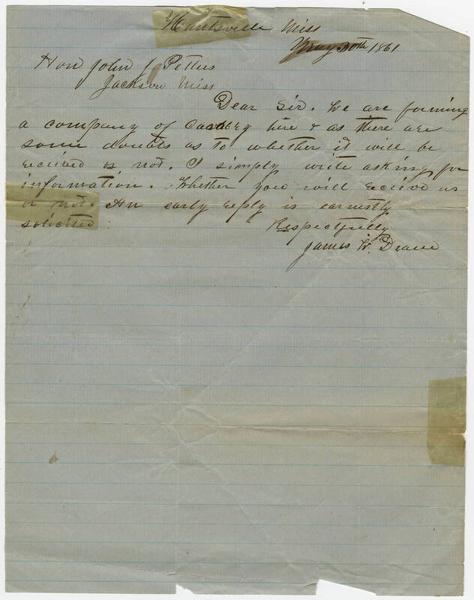 Huntsville Miss
May 30th 1861
Hon John J Pettus
Jackson Miss
Dear Sir. We are forming
a company of Cavalry here & as there are
some doubts as to whether it will be
received is not. I simply write asking for
information. Whether you will receive us
or not. An early reply is earnestly
solicited.
Respectfully
James W. Deane